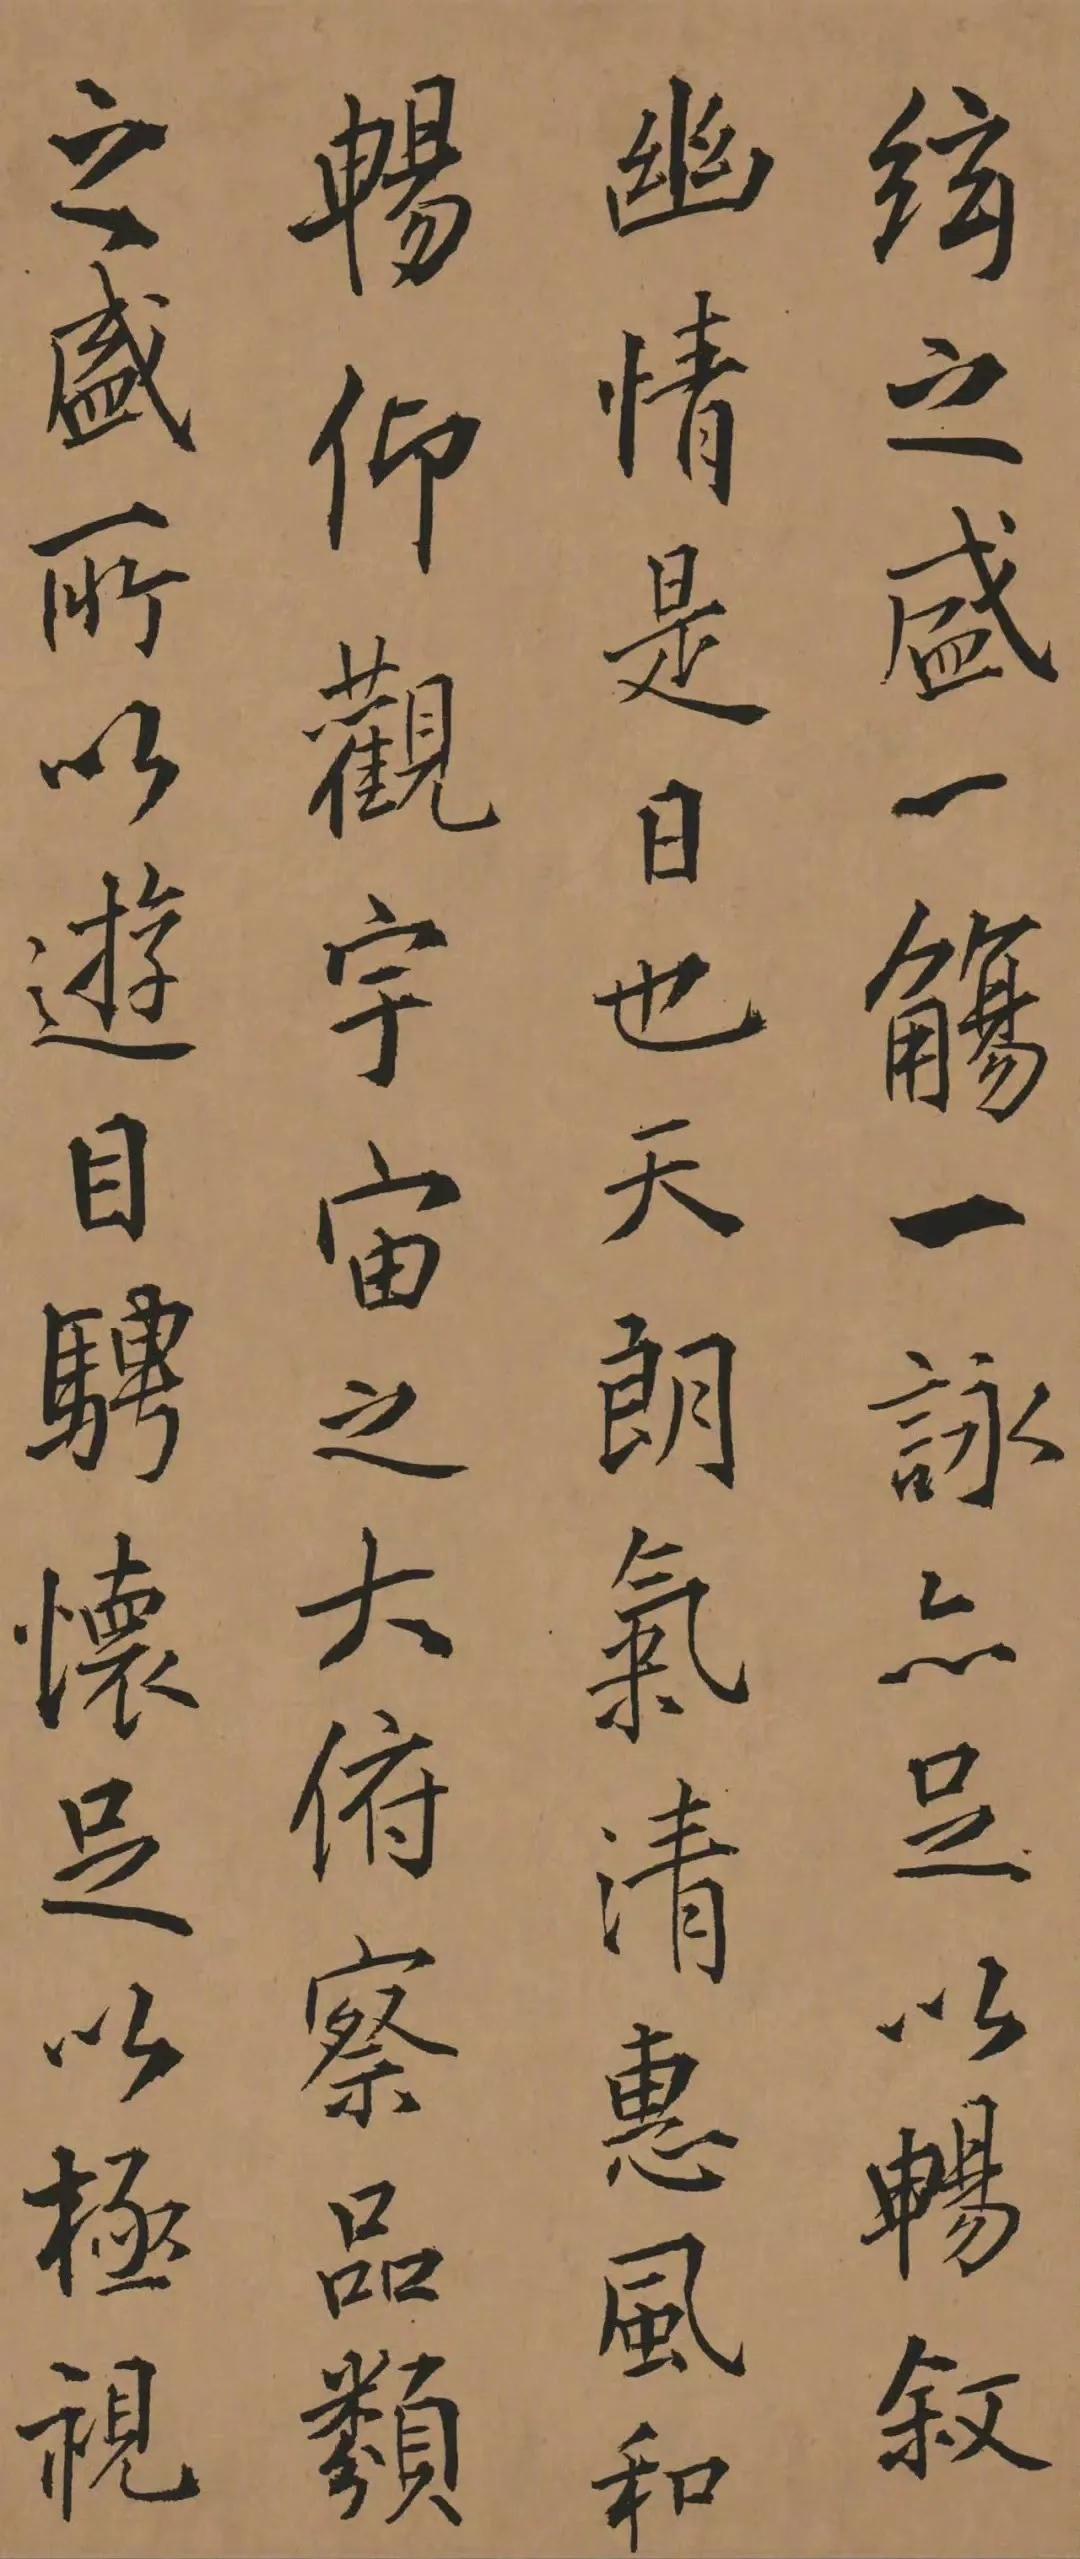 絃之盛一觴一詠亦足以暢敘
幽情是日也天朗氣清惠風和
暢仰觀宇宙之大俯察品類
之盛所以遊目騁懷足以極視